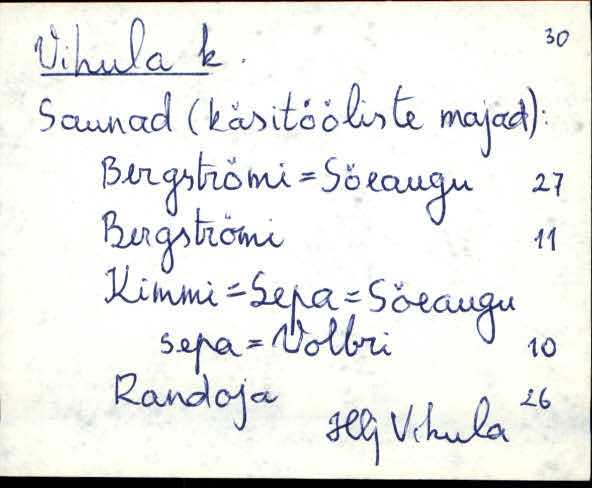 Vihula k. 30
Saunad (käsitööliste majad):
Bergströmi = Söeaugu 27
Bergströmi 11
Kimmi = Sepa = Söeaugu
sepa = Volbri 10
Randoja 26
Hlj Vihula